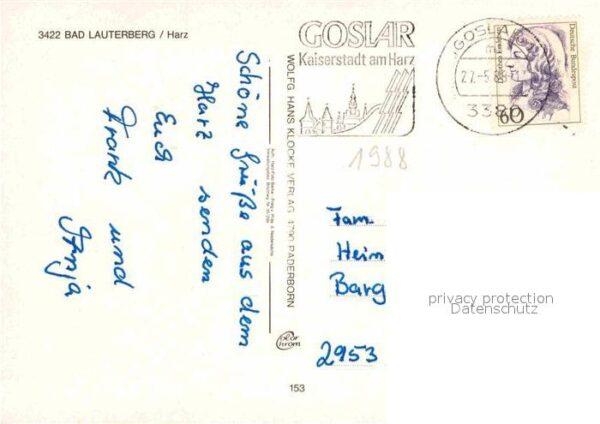 3422 BAD LAUTERBERG / Harz
Schöne Grüße aus dem
Harz senden
Euch
Frank und
WOLFG. HANS KLOCKE VERLAG 4790 PADERBORN
153
GOSLAR
Kaiserstadt am Harz
GOSLA
3380
Deutsche Bundespost
60
1988
Fam.
Hein
Barg
2953
privacy protection
Datenschutz